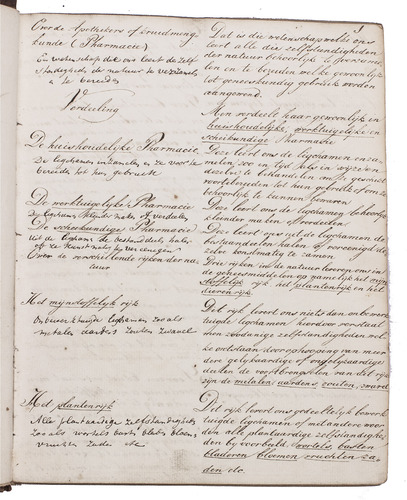 Over de Apothekers of kruidmeng
kunde (Pharmacie)
En wetenschap die ons leert de zelf
standigheden der natuur te verzamelen
en te bereiden
Verdeeling
De huishoudelijke Pharmacie
De ligchamen inzamelen en ze voor te
bereide tot hun gebruik
De werktuigelijke Pharmacie
De ligchamen kleinder maken of verdeelen
De scheikundige Pharmacie
uit de ligchamen de bestanddeelen halen
of ze kunstmatig vereenigen
Over de verschillende rijken der na
tuur
Het mijnstoffelijk rijk
Onbewerktuigde lighamen zoo als
metalen aardens zouten zwavel
Het plantenrijk
Alle plantaardige zelfstandigheden
zoo als wortels basts bladen bloemen
vruchten zaden etc
3
Dat is die wetenschap welke ons
leert alle die zelfstandigheden
der natuur behoorlijk te verzame
len en te bereiden welke gewoonlijk
tot geneeskundig gebruik worden
aangewend.
Men verdeelt haar gewoonlijk in
huishoudelijke, werktuigelijke en
scheikundige Pharmacie
Deze leert ons de ligchamen in za
melen, zoo in tijd, plaats in wijze en
dezelve te behandelen en geschikt
voortebereiden tot hun gebruik of om ze
behoorlijk te kunnen bewaren
Deze leert ons de ligchamen behoorlijk
kleinder maken of verdeelen
Deze leert ons uit de ligchamen de
bestanddeelen halen of vereenigd de
zelve konstmatig te zamen
Drie rijken in de natuur leveren ons in
de geneesmiddelen op namelijk het mijn
stoffelijk rijk het plantenrijk en het
dierenrijk
Dit rijk levert ons niets dan onbewerk
tuigde ligchamen hierdoor verstaat
men zoodanige zelfstandigheden wel
ke ontstaan door ophooping van meer
dere gelijkaardige of ongelijkaardige
deelen de voortbrengselen van dit rijk
zijn de metalen aardens, zouten, zwavel
Dit rijk levert ons gedeeltelijk bewerk
tuigde ligchamen of met andere woor
den alle plantaardige zelfstandighe
den bij voorbeeld wortels, basten
bladeren bloemen vruchten za
den etc.